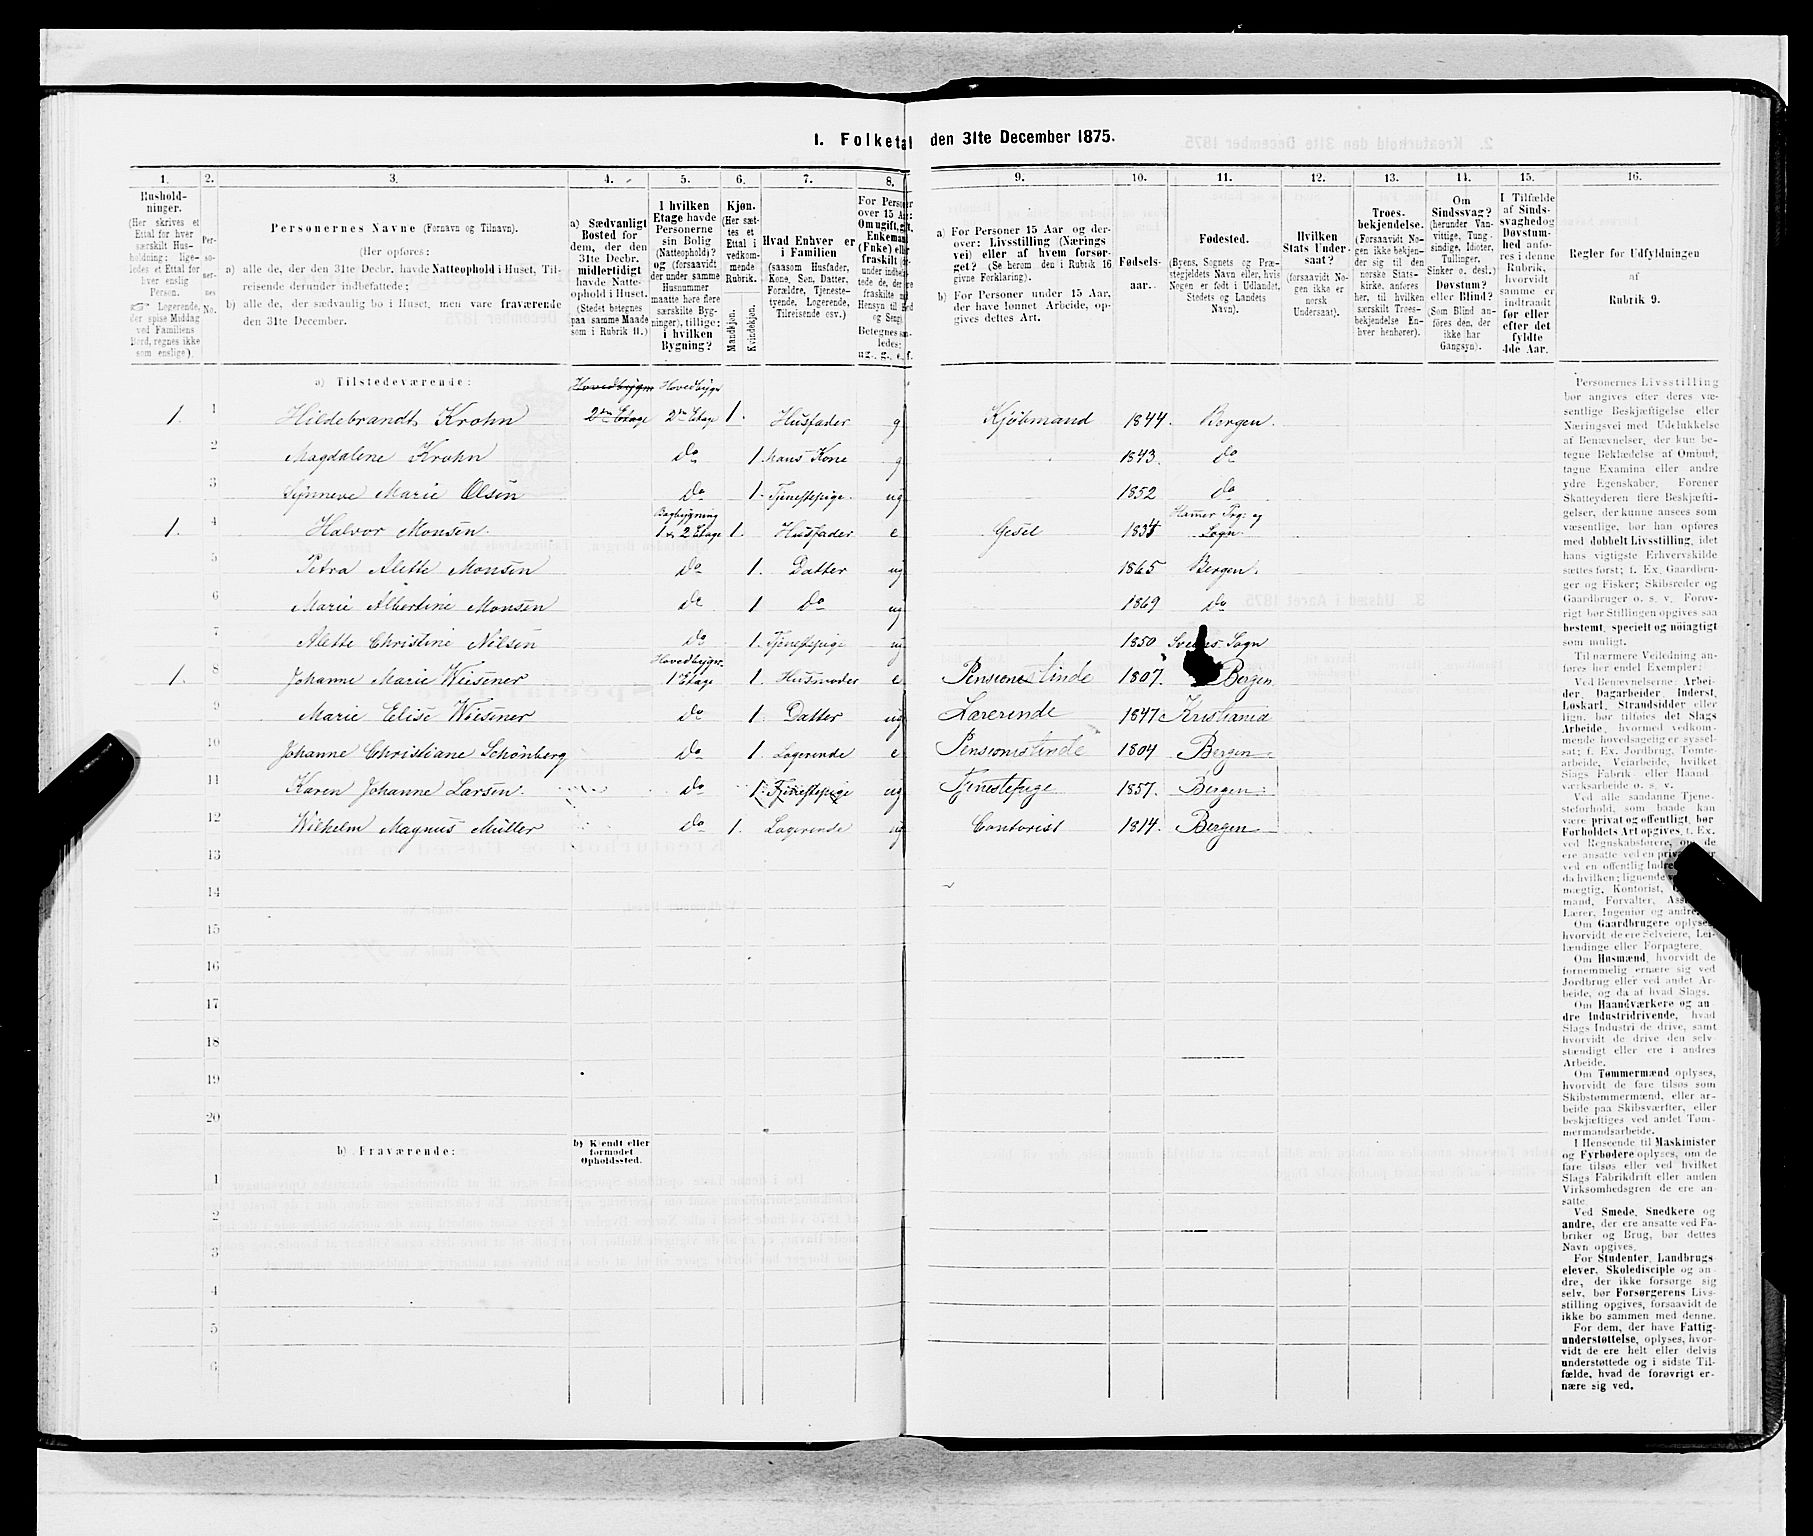 1. Folketal den 31te December 1875.
1. 2. 3. 4. 5. 6. 7. 8. 9. 10. 11. 12. 13. 14. 15. 16.
Hushold-
ninger.
(Her skrives et
Ettal for hver
særskilt Hus-
holdning; lige-
ledes et Ettal for
hver enslig
Person.
Logerende,
der spise Middag
ved Familiens
Bord, regnes ikke
som enslige).
Per-
so-
ner-
nes
No.
Personernes Navne (Fornavn og Tilnavn).
(Her opføres:
a) alle de, der den 31te Decbr. havde Natteophold i Huset, Til-
reisende derunder indbefattede;
b) alle de, der sædvanlig bo i Huset, men vare fraværende
den 31te December.
a) Sædvanligt
Bosted for
dem, der den
31te Decbr.
midlertidigt
havde Natte-
ophold i Huset.
(Stedet betegnes
paa samme Maade
som i Rubrik 11.)
I hvilken
Etage havde
Personerne
sin Bolig
(Natteophold)?
og (forsaavidt
der under samme
Husnummer
maatte høre flere
særskilte Byg-
ninger), tillige:
i hvilken
Bygning?
Kjøn.
(Her sæt-
tes et
Ettal i
vedkom-
mende
Rubrik.
Mandkjøn.
Kvindekjøn.
Hvad Enhver er
i Familien
(saasom Husfader,
Kone, Søn, Datter,
Forældre, Tjeneste-
tyende, Logerende,
Tilreisende osv.)
For Personer
over 15 Aar:
Om ugift, gift,
Enkemand
(Enke) eller
fraskilt
Betegnes saa-
ledes:
ug., g., e., f.
a) For Personer 15 Aar og der-
over: Livsstilling (Nærings-
vei) eller af hvem forsør-
get? (Se herom den i Rubrik 16
givne Forklaring).
b) For Personer under 15 Aar,
der have lønnet Arbeide, op-
gives dettes Art.
Fødsels-
aar.
Fødested.
(Byens, Sognets og Præ-
stegjeldets Navn eller, hvis
Nogen er født i Udlandet,
Stedets og Landets
Navn).
Hvilken
Stats Under-
saat?
(forsaavidt No-
gen ikke er
norsk
Undersaat).
Troes-
bekjendelse.
(Forsaavidt No-
gen ikke bekjen-
der sig til den
norske Stats-
kirke, anføres
her, til hvilken
særskilt Troes-
bekjendelse En-
hver henhører).
Om
Sindssvag?
(herunder Van-
vittige, Tung-
sindige, Idioter,
Tullinger,
Sinker o. desl.)
Døvstum?
eller Blind?
(Som Blind an-
føres den, der
ikke har
Gangsyn).
I Tilfælde
af Sinds-
svaghed og
Døvstum-
hed anfø-
res i denne
Rubrik,
hvorvidt
samme er
indtraadt
før eller
efter det
fyldte
4de Aar.
Regler for Udfyldningen
af
Rubrik 9.
a) Tilstedeværende: Hovedbygn Hovedbygn
1. 1 Hildebrandt Krohn 2den Etage 2den Etage 1. Husfader g Kjøbmand 1844. Bergen.
2 Magdalene Krohn do 1 hans Kone g 1843. do
3 Synneve Marie Olsen do 1. Tjenestepige ug 1852 do
1. 4 Halvor Monsen. Bagbygning 1 & 2 Etage 1. Husfader e Gesel Sogn
5 Petra Alette Monsen do 1. Datter ug 1865 Bergen.
6 Marie Albertine Monsen do 1 do ug 1869 do
7 Alette Christine Nilsen do 1. Tjenestepige ug 1850 Sogn
1. 8 Johanne Marie Wiesener Hovedbygn. 1 Etage 1. Husmoder e Pensionistinde 1807. Bergen
9 Marie Elise Wiesener do 1. Datter ug Lærerinde 1847 Kristiania
10 Johanne Christiane Schönberg do 1. Logerende e Pensionistinde 1804 Bergen.
11 Karen Johanne Larsen. do 1. Tjenestepige ug Tjenestepige 1857. Bergen.
12 Wilhelm Magnus Müller do 1. Logerende ug Contorist 1814. Bergen
13
14
15
16
17
18
19
20
b) Fraværende:
b) Kjendt eller
formodet
Opholdssted.
1
2
3
4
5
6
Personernes Livsstilling
bør angives efter deres væ-
sentlige Beskjæftigelse eller
Næringsvei med Udelukkelse
af Benævnelser, der kun be-
tegne Beklædelse af Ombud,
tagne Examina eller andre
ydre Egenskaber. Forener
Skatteyderen flere Beskjæfti-
gelser, der kunne ansees som
væsentlige, bør han opføres
med dobbelt Livsstilling, idet
hans vigtigste Erhvervskilde
sættes først; f. Ex. Gaardbru-
ger og Fisker; Skibsreder og
Gaardbruger o. s. v. Forøv-
rigt bør Stillingen opgives saa
bestemt, specielt og nøiagtigt
som muligt.
Til nærmere Veiledning an-
føres her endel Exempler:
Ved Benævnelserne: Arbei-
der, Dagarbeider, Inderst,
Løskarl, Strandsidder eller
lign. bør tilføies det Slags
Arbeide, hvormed vedkom-
mende hovedsagelig er syssel-
sat; f. Ex. Jordbrug, Tomte-
arbeide, Veiarbeide, hvilket
Slags Fabrik- eller Haand-
værksarbeide o. s. v.
Ved alle saadanne Tjene-
steforhold, som baade kan
være privat og offentligt, bør
Forholdets Art opgives, f. Ex.
ved Regnskabsførere, om de
ere ansatte ved en
ved en offentlig
da hvilken; lignende
mægtig, Kontorist,
mand, Forvalter,
Lærer, Ingeniør og andre.
Om Gaardbrugere oplyses,
hvorvidt de ere Selveiere, Lei-
lændinge eller Forpagtere.
Om Husmænd, hvorvidt de
fornemmelig ernære sig ved
Jordbrug eller ved andet Ar-
beide, og da af hvad Slags.
Om Haandværkere og an-
dre Industridrivende, hvad
Slags Industri de drive, samt
hvorvidt de drive den selv-
stændigt eller ere i andres
Arbeide.
Om Tømmermænd oplyses,
hvorvidt de fare tilsøs som
Skibstømmermænd, eller ar-
beide paa Skibsværfter, eller
beskjæftiges ved andet Tøm-
mermandsarbeide.
I Henseende til Maskinister
og Fyrbødere oplyses, om de
fare tilsøs eller ved hvilket
Slags Fabrikdrift eller anden
Virksomhedsgren de ere an-
satte.
Ved Smede, Snedkere og
andre, der ere ansatte ved Fa-
briker og Brug, bør dettes
Navn opgives.
For Studenter, Landbrugs-
elever, Skoledisciple og an-
dre, der ikke forsørge sig
selv, bør Forsørgerens Livs-
stilling opgives, forsaavidt de
ikke bo sammen med denne.
For dem, der have Fattig-
understøttelse, oplyses, hvor-
vidt de ere helt eller delvis
understøttede og i sidste Til-
fælde, hvad de forøvrigt er-
nære sig ved.